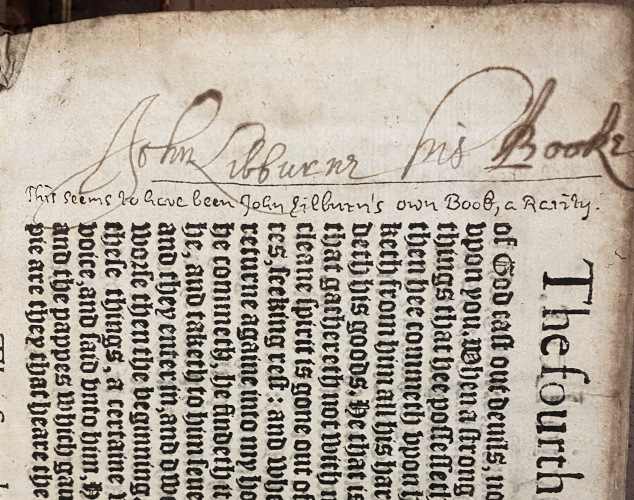 John Libburne his Booke
This seems to have been John Lilburn's own Book, a Rarity.
The fourth
of God cast out deuils, no
vpon you. When a strong
things that hee possesseth
then hee commeth vpon
keth from him all his har
deth his goods. He that is
that gathereth not with
cleane spirit is gone out of
ces, seeking rest: and whe
returne againe into my ho
he commeth, he findeth it
he, and taketh to himselfe
and they enter in, and dwe
worse then the beginning
these things, a certaine
voice, and said vnto him, H
and the pappes which gau
pie are they that heare the